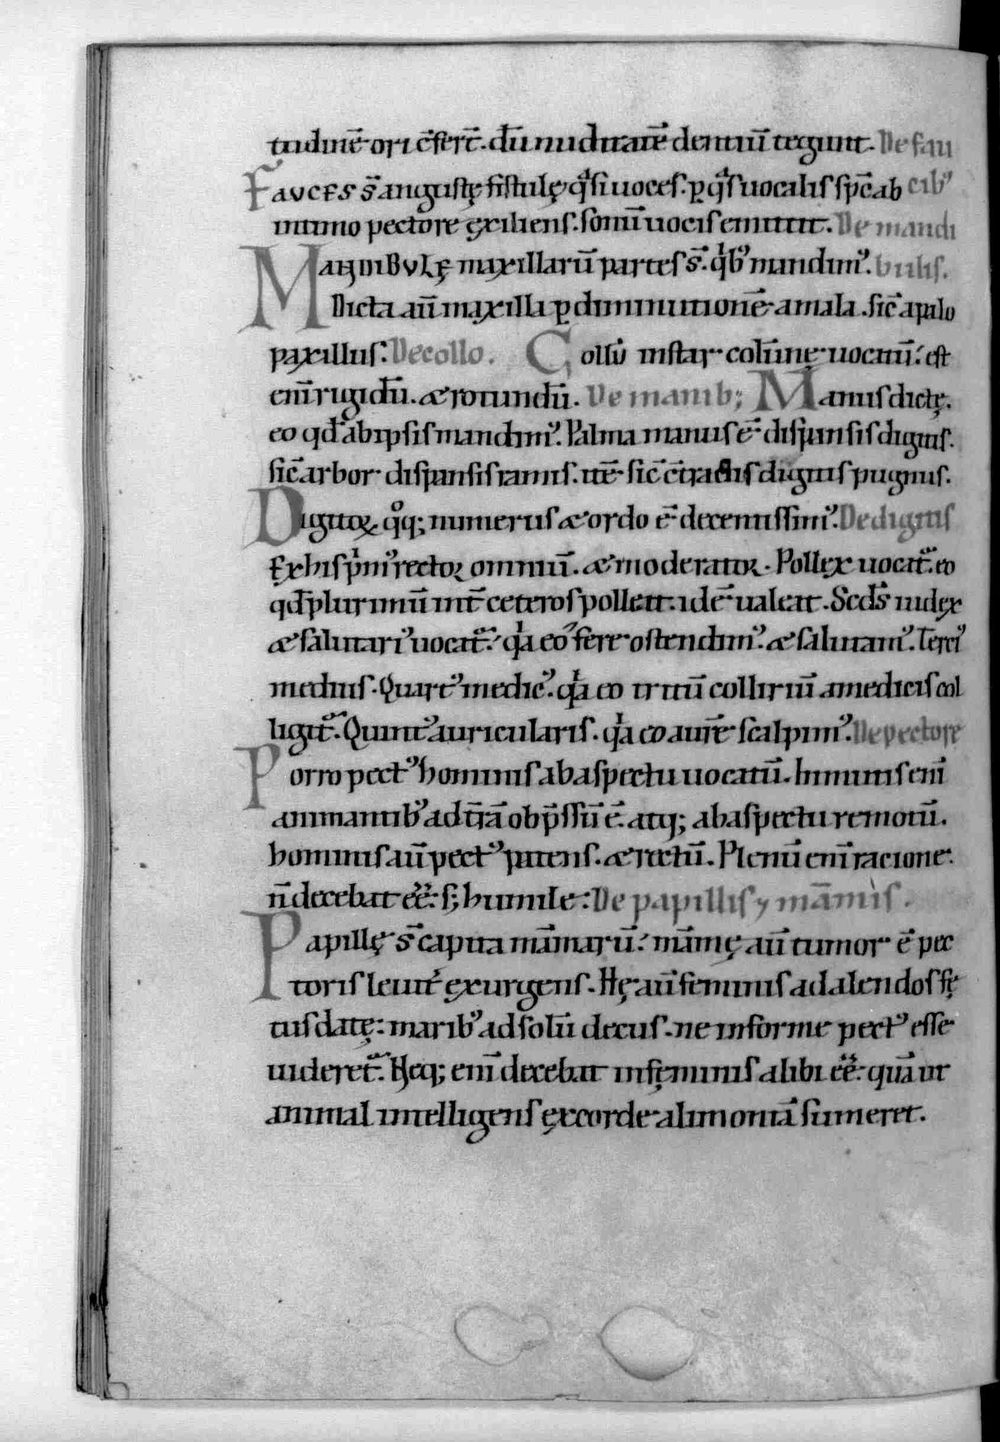 tudinē ori c̄fert̄. dū nuditatē dentiū tegunt. De fau
Fauces s̄ angustę fistulę qͣsi uoces. ꝑ qͣs uocalis sp̄c ab cibꝰ
intimo pectore exiliens. sonū uocis emittit. De mandi
Mandibulę maxillarū partes s̄. qͥbꝰ mandimꝰ. bulis.
Dicta aū maxilla ꝑ diminutionē a mala. sic̄ a palo
paxillus. De collo. Collū instar colūnę uocatū. est
enī rigidū. æ rotundū. De manib; Manus dictę.
eo qđ ab ipsis mandimꝰ. Palma manus ē dispansis digitis.
sic̄ arbor dispansis ramis. itē sic̄ c̄tractis digitis pugnus.
Digitoꝝ qͦq; numerus æ ordo ē decentissimꝰ. De digitis
Ex his pͥmꝰ rector omniū. æ moderator. Pollex uocat᷑. eo
qđ plurimū int̄ ceteros pollett. idē ualeat. Scđs index
æ salutariꝰ uocat᷑. qͥa eoꝰ fere ostendimꝰ. æ salutamꝰ. Terciꝰ
medius. Quartꝰ medicꝰ. qͥa eo tritū colliriū a medicis col
ligit᷑. Quintꝰ auricularis. qͥa eo aurē scalpimꝰ. De pectore
Porro pectꝰ hominis ab aspectu uocatū. Inmitis enī
animantibꝰ ad t̄rā obp̄ssū ē. atq; ab aspectu remotū.
hominis aū pectꝰ patens. æ rectū. Plenū enī racione
n̄ decebat eē. s; humile. De papillis ⁊ māmis.
Papillę s̄ capita māmarū. māmę aū tumor ē pec
toris leuit̄ exurgens. Hę aū feminis ad alendos fę
tus datę. maribꝰ ad solū decus. ne informe pectꝰ esse
uideret᷑. Neq; enī decebat in fęminis alibi eē. quā ut
animal intelligens ex corde alimoniā sumeret.